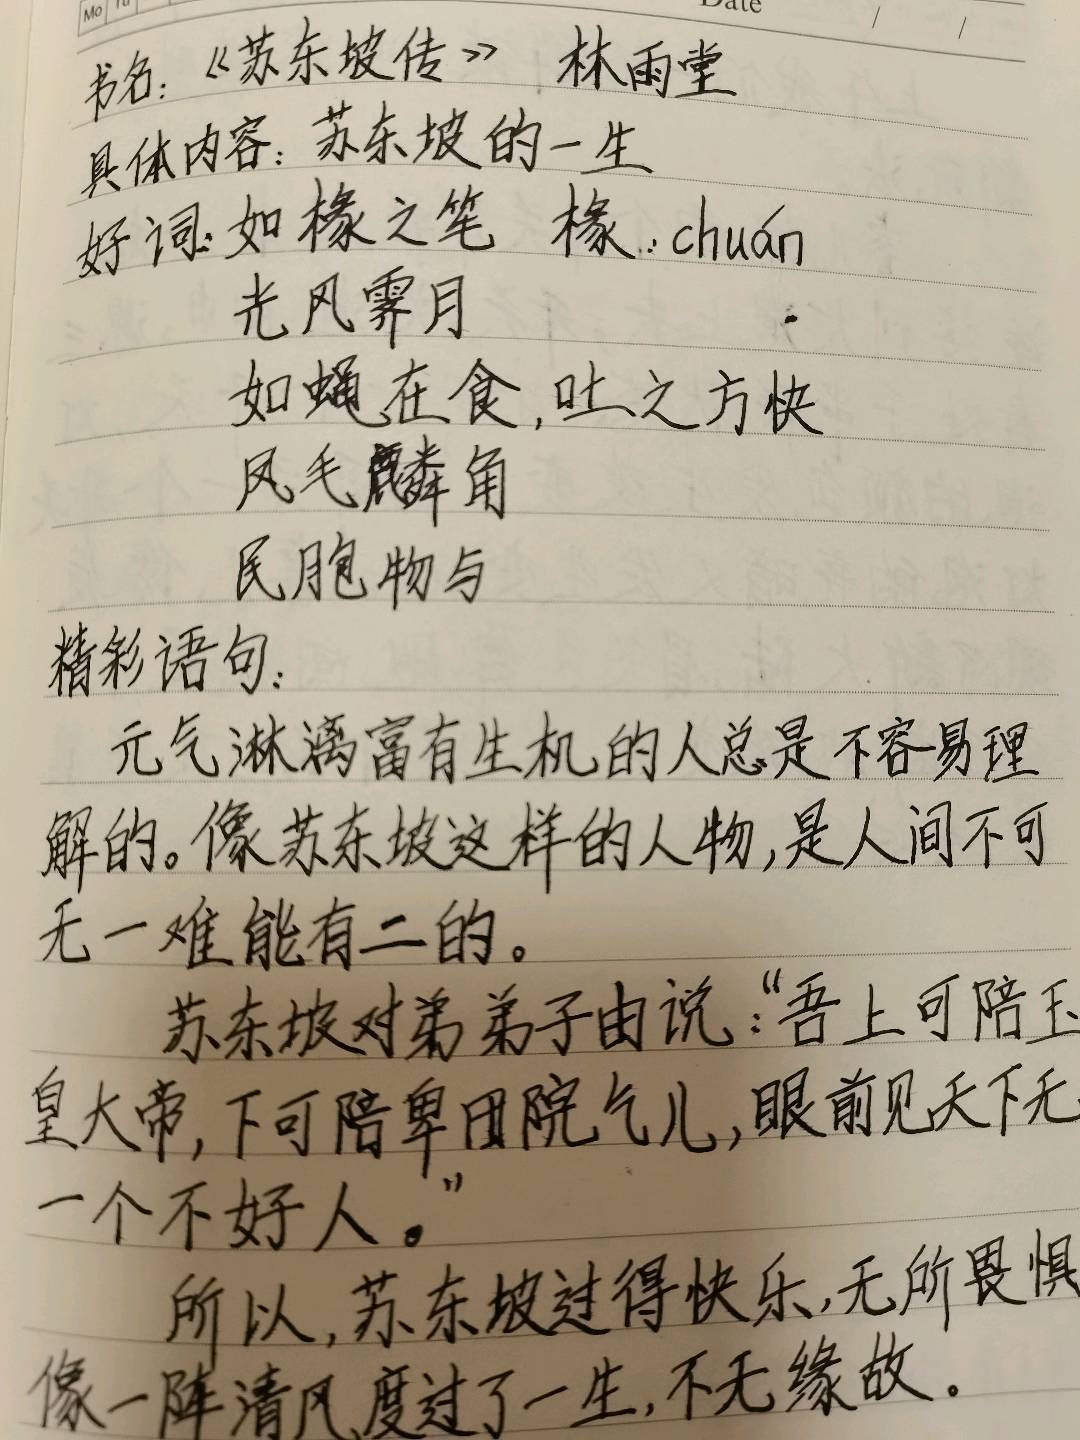 Mo Tu
Date / /
书名：《苏东坡传》 林雨堂
具体内容：苏东坡的一生
好词：如椽之笔 椽：chuán
光风霁月
如蝇在食，吐之方快
风毛麟角
民胞物与
精彩语句：
元气淋漓富有生机的人总是不容易理
解的。像苏东坡这样的人物，是人间不可
无一难能有二的。
苏东坡对弟弟子由说：“吾上可陪玉
皇大帝，下可陪卑田院乞儿，眼前见天下无
一个不好人。”
所以，苏东坡过得快乐，无所畏惧
像一阵清风度过了一生，不无缘故。